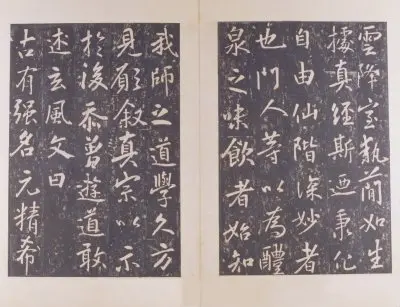 雲降室執簡如生
據真經斯迺秉化
自由仙階深妙者
也門人等以為醴
泉之味飲者始知
我師之道學久方
見願叙真宗以示
於後忝曾遊道敢
述玄風文曰
古有强名元精希